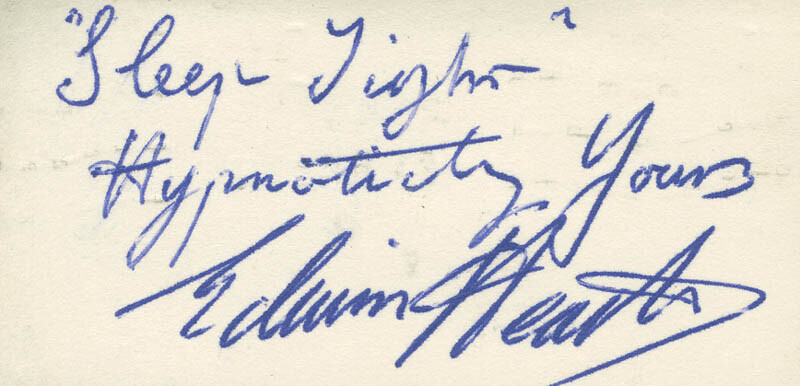 "Sleep Tight"
Hypnoticly Yours
Edwin Heath